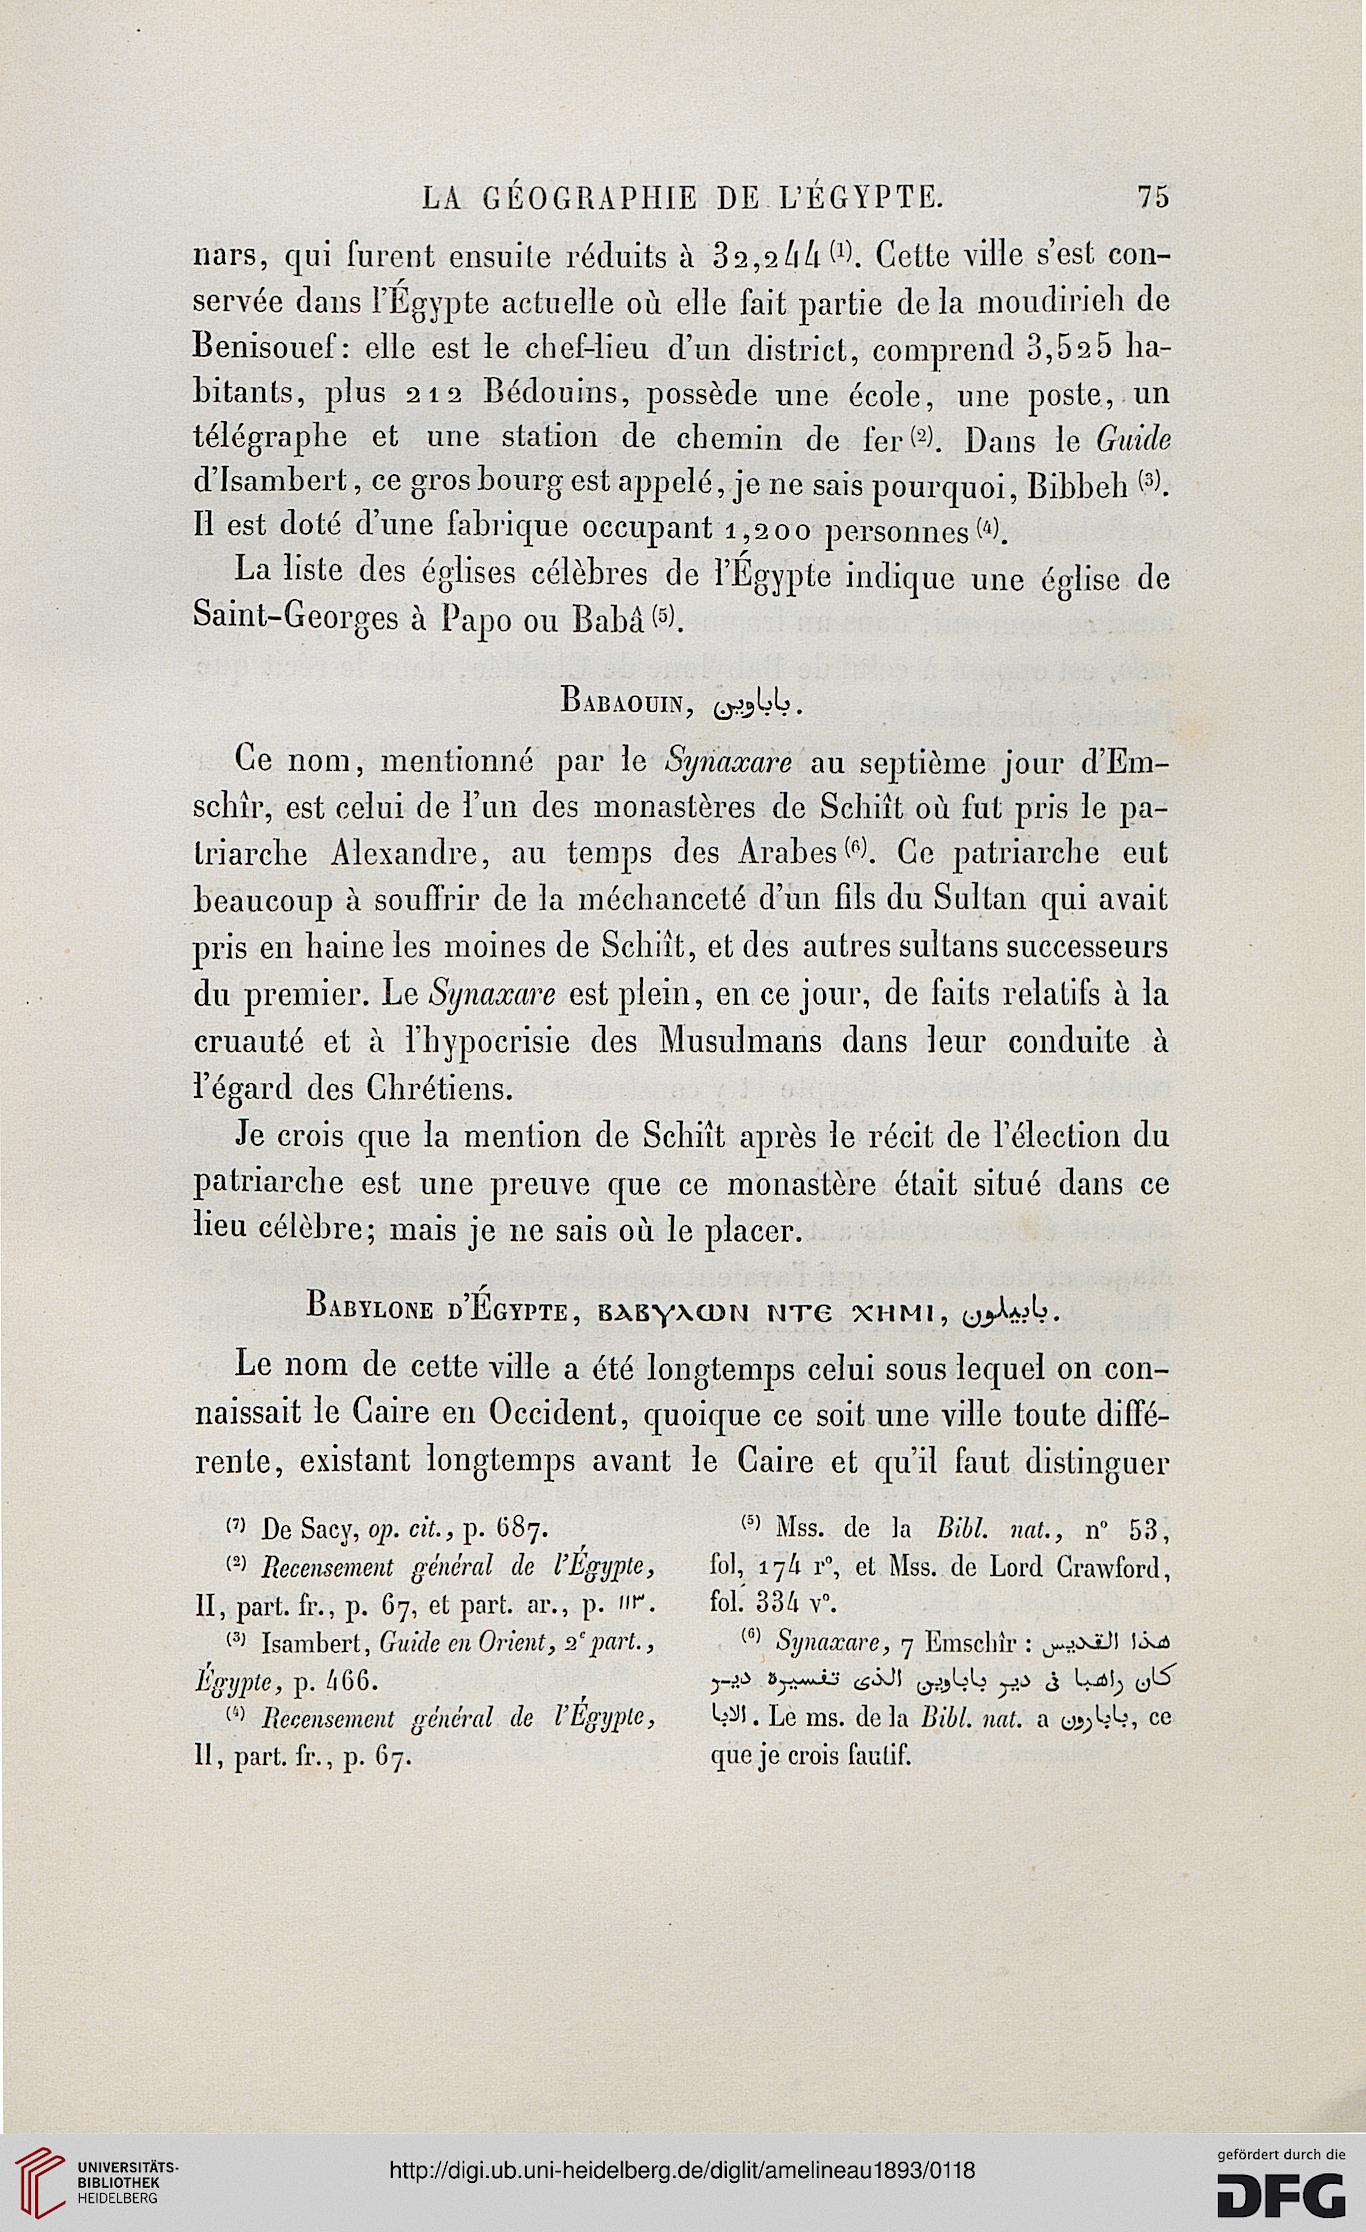 LA GÉOGRAPHIE DE L'ÉGYPTE. 75
nars, qui furent ensuite réduits à 32,244 (1). Cette ville s'est con-
servée dans l'Égypte actuelle où elle fait partie de la moudirieh de
Benisouef: elle est le chef-lieu d'un district, comprend 3,525 ha-
bitants, plus 212 Bédouins, possède une école, une poste, un
télégraphe et une station de chemin de fer (2). Dans le Guide
d'Isambert, ce gros bourg est appelé, je ne sais pourquoi, Bibbeh (3).
Il est doté d'une fabrique occupant 1,200 personnes (4).
La liste des églises célèbres de l'Égypte indique une église de
Saint-Georges à Papo ou Babâ (5).
BABAOUIN, باباوين.
Ce nom, mentionné par le Synaxare au septième jour d'Em-
schîr, est celui de l'un des monastères de Schiît où fut pris le pa-
triarche Alexandre, au temps des Arabes (6). Ce patriarche eut
beaucoup à souffrir de la méchanceté d'un fils du Sultan qui avait
pris en haine les moines de Schiît, et des autres sultans successeurs
du premier. Le Synaxare est plein, en ce jour, de faits relatifs à la
cruauté et à l'hypocrisie des Musulmans dans leur conduite à
l'égard des Chrétiens.
Je crois que la mention de Schiît après le récit de l'élection du
patriarche est une preuve que ce monastère était situé dans ce
lieu célèbre; mais je ne sais où le placer.
BABYLONE D'ÉGYPTE, ⲃⲁⲃⲩⲗⲱⲛ ⲛⲧⲉ ⲭⲏⲙⲓ, بابيلون.
Le nom de cette ville a été longtemps celui sous lequel on con-
naissait le Caire en Occident, quoique ce soit une ville toute diffé-
rente, existant longtemps avant le Caire et qu'il faut distinguer
(7) De Sacy, op. cit., p. 687.
(2) Recensement général de l'Égypte,
II, part. fr., p. 67, et part. ar., p. ١١٣.
(3) Isambert, Guide en Orient, 2e part.,
Égypte, p. 466.
(4) Recensement général de l'Égypte,
II, part. fr., p. 67.
(5) Mss. de la Bibl. nat., n° 53,
fol, 174 r°, et Mss. de Lord Crawford,
fol. 334 v°.
(6) Synaxare, 7 Emschîr : هذا القديس
كان راهبا في دير باباوين الذى تفسيره ديـر
الابا. Le ms. de la Bibl. nat. a بابارون, ce
que je crois fautif.
UNIVERSITÄTS-
BIBLIOTHEK
HEIDELBERG
http://digi.ub.uni-heidelberg.de/diglit/amelineau1893/0118
gefördert durch die
DFG